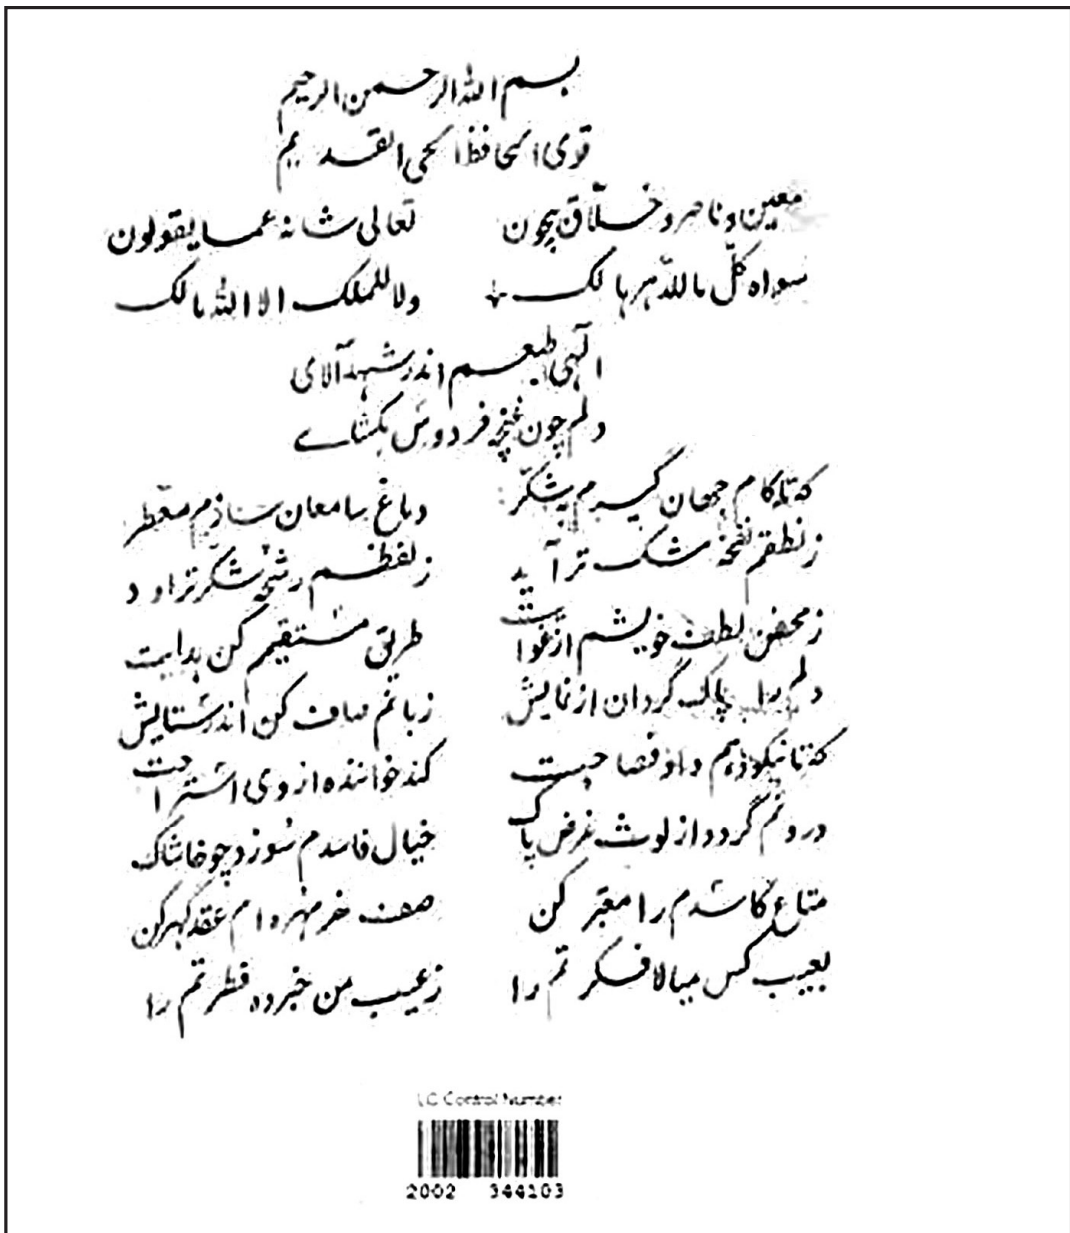 بسم الله الرحمن الرحیم
قوی الحافظ الحی القدیم
معین و ناصر و خلّاق بیچون تعالی شانه عما یقولون
سواه کلّ هالک ولا للملک الا الله مالک
الهی طبعم اندر شهد آلای
دلم چون غنچه فردوس بکشاے
که تا کام جهان گیرم بشکّر دماغ سامعان سازم معطّر
ز نطقم نفحهٔ مشک تر آید ز لفظم رشحهٔ شکّر تراود
ز محض لطف خویشم از غوایت طریق مستقیم کن هدایت
دلم را پاک گردان از نمایش زبانم صاف کن اندر ستایش
که تا نیکو دهم داد فصاحت کند خواننده از وی استراحت
درونم گردد از لوث غرض پاک خیال فاسدم سوزد چو خاشاک
متاع کاسدم را معتبر کن صف خرمهره ام عقد گهر کن
بعیب کس میالا فکرتم را ز عیب من خبر ده فطرتم را
LC Control Number
2002 344103